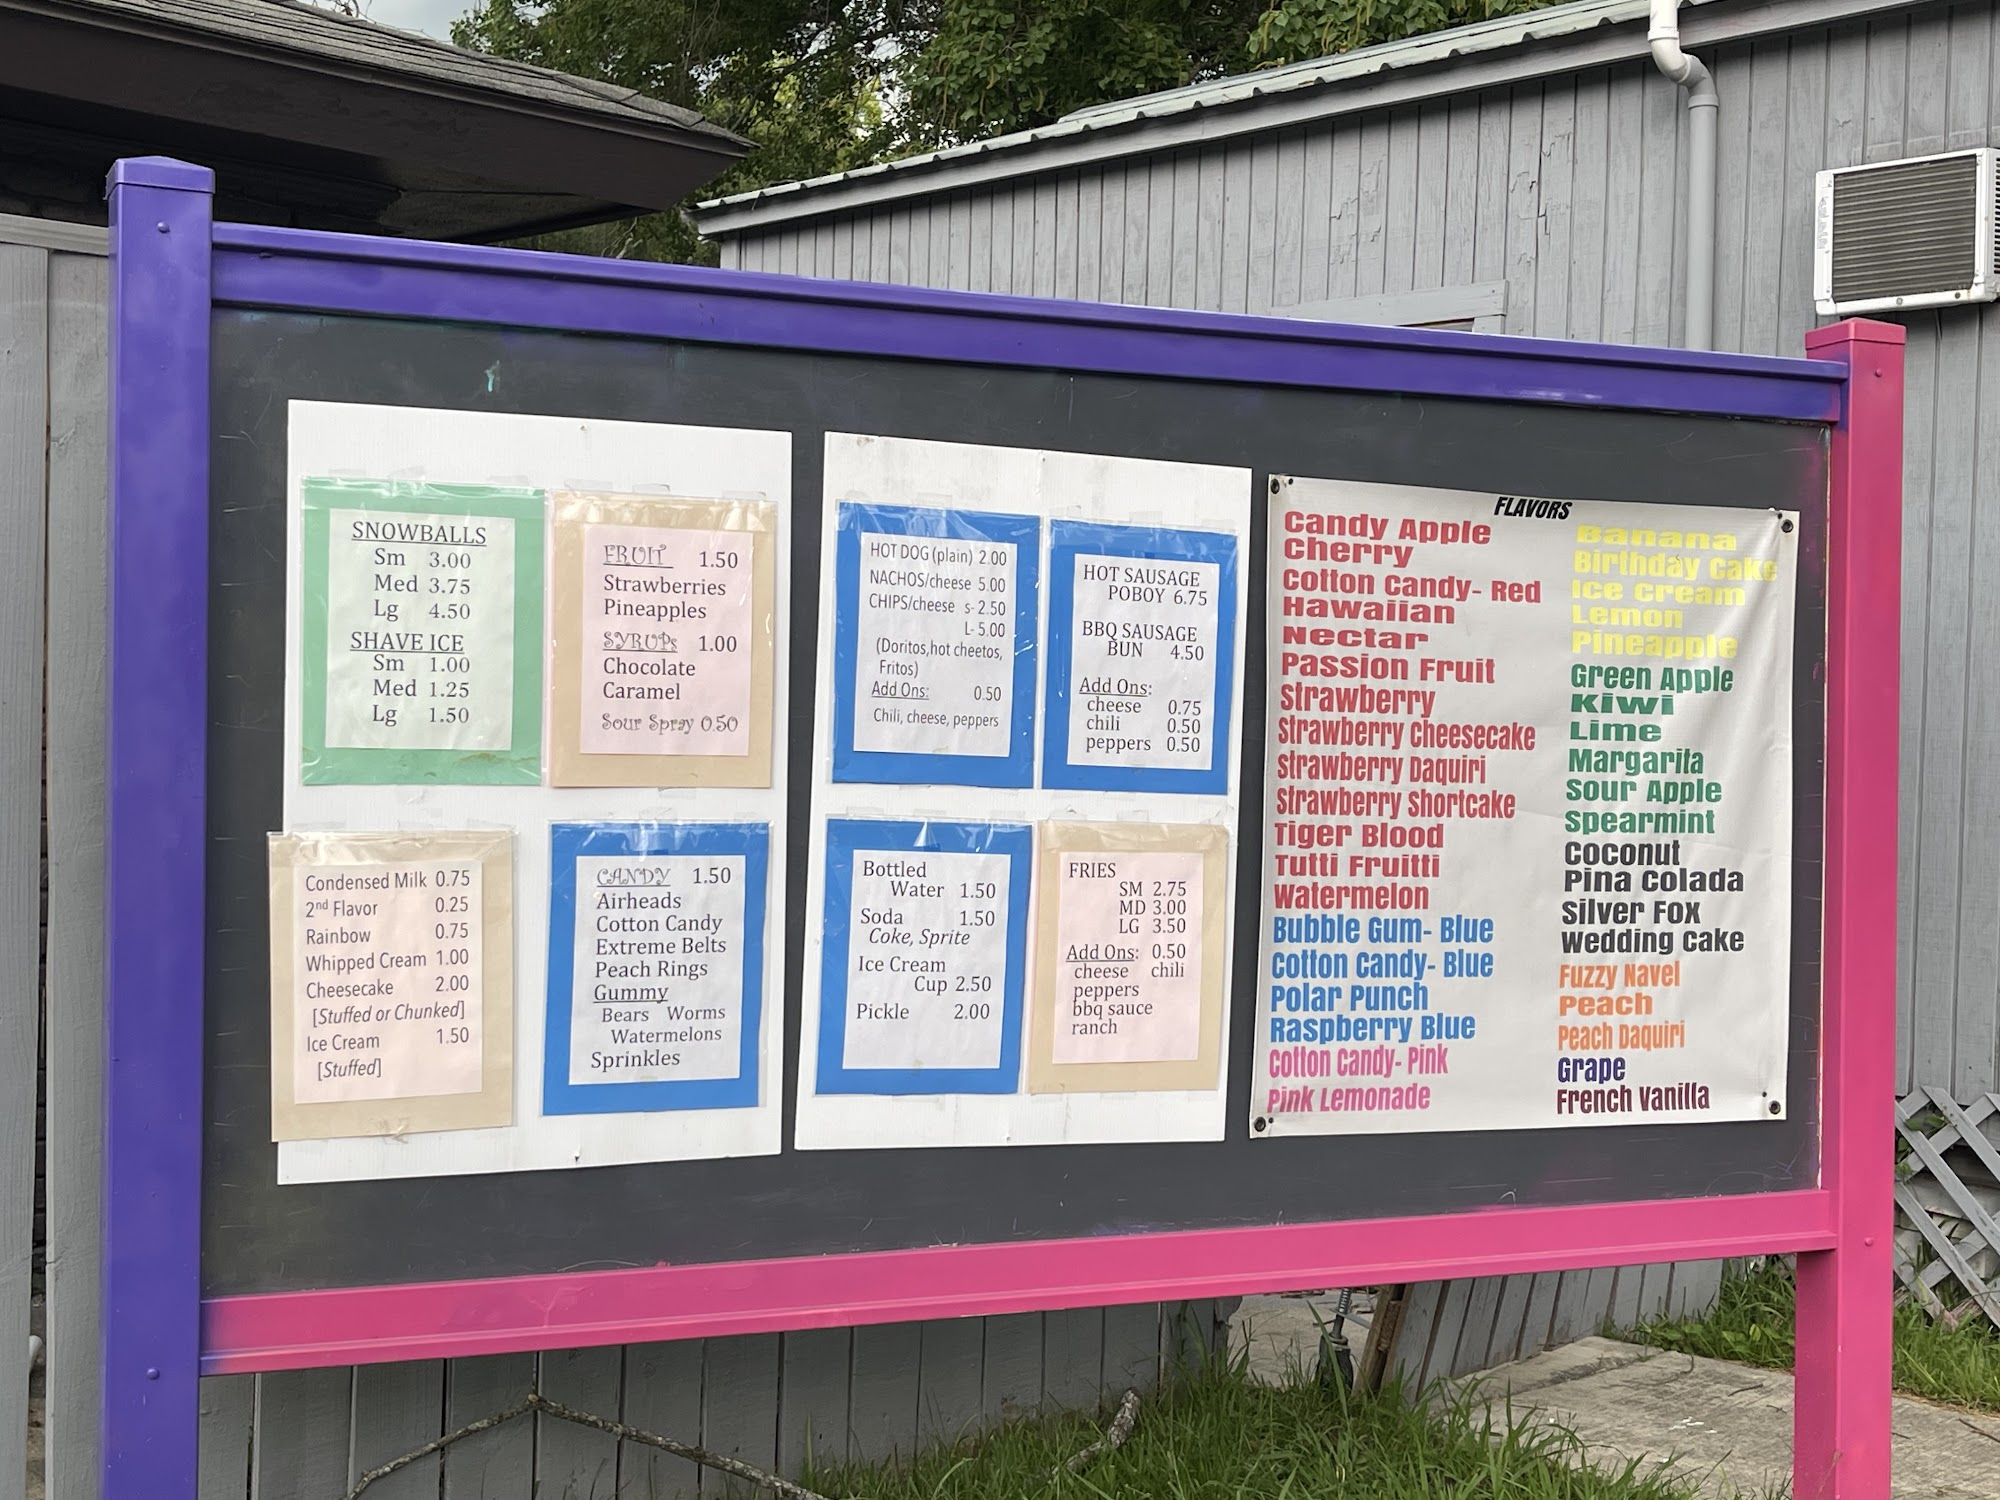 SNOWBALLS
Sm 3.00
Med 3.75
Lg 4.50
SHAVE ICE
Sm 1.00
Med 1.25
Lg 1.50
FRUIT 1.50
Strawberries
Pineapples
SYRUPs 1.00
Chocolate
Caramel
Sour Spray 0.50
Condensed Milk 0.75
2nd Flavor 0.25
Rainbow 0.75
Whipped Cream 1.00
Cheesecake 2.00
[Stuffed or Chunked]
Ice Cream 1.50
[Stuffed]
CANDY 1.50
Airheads
Cotton Candy
Extreme Belts
Peach Rings
Gummy
Bears Worms
Watermelons
Sprinkles
HOT DOG (plain) 2.00
NACHOS/cheese 5.00
CHIPS/cheese s- 2.50
L- 5.00
(Doritos,hot cheetos,
Fritos)
Add Ons: 0.50
Chili, cheese, peppers
HOT SAUSAGE
POBOY 6.75
BBQ SAUSAGE
BUN 4.50
Add Ons:
cheese 0.75
chili 0.50
peppers 0.50
Bottled
Water 1.50
Soda 1.50
Coke, Sprite
Ice Cream
Cup 2.50
Pickle 2.00
FRIES
SM 2.75
MD 3.00
LG 3.50
Add Ons: 0.50
cheese chili
peppers
bbq sauce
ranch
FLAVORS
Candy Apple
Cherry
Cotton Candy- Red
Hawaiian
Nectar
Passion Fruit
Strawberry
Strawberry Cheesecake
Strawberry Daquiri
Strawberry Shortcake
Tiger Blood
Tutti Fruitti
Watermelon
Bubble Gum- Blue
Cotton Candy- Blue
Polar Punch
Raspberry Blue
Cotton Candy- Pink
Pink Lemonade
Banana
Birthday Cake
Ice Cream
Lemon
Pineapple
Green Apple
Kiwi
Lime
Margarita
Sour Apple
Spearmint
Coconut
Pina Colada
Silver Fox
Wedding Cake
Fuzzy Navel
Peach
Peach Daquiri
Grape
French Vanilla